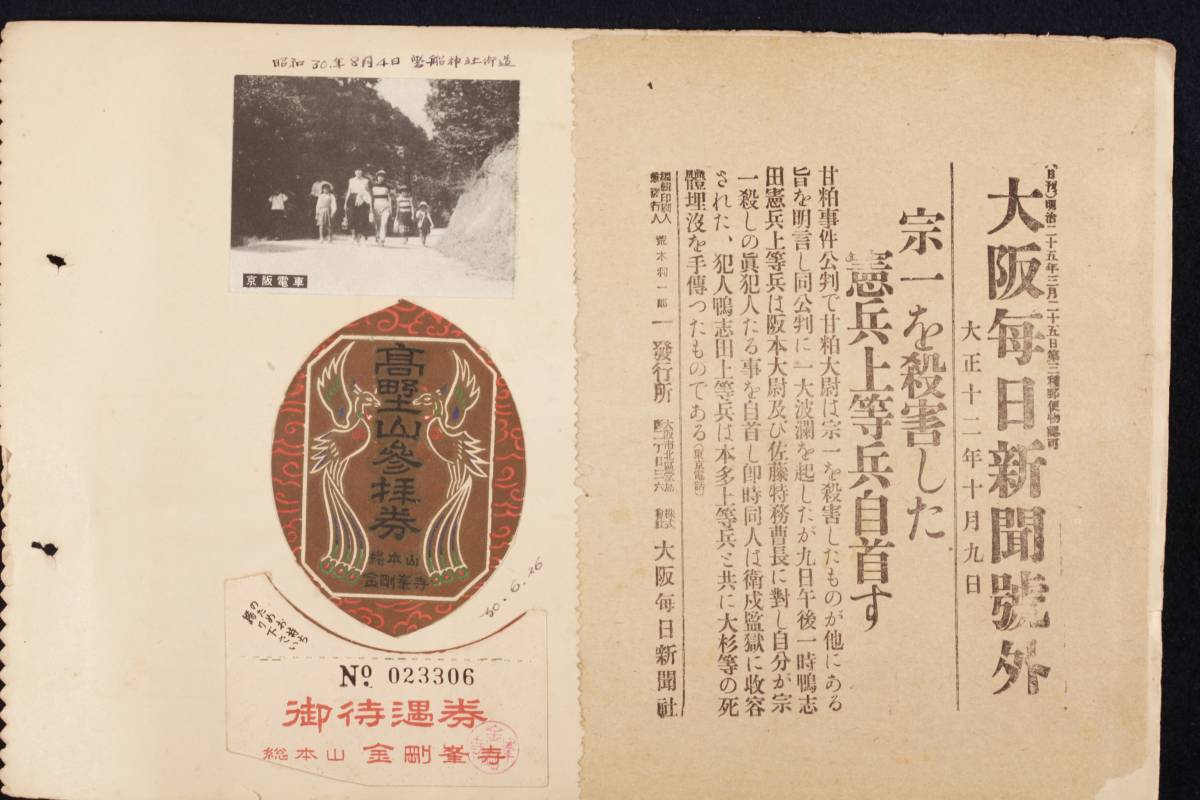 昭和30.年8月4日 磐船神社街道
京阪電車
高野山參拝券
総本山
金剛峯寺
50.6.26
お待ち
のためお
帰り下さい
№ 023306
御待遇券
総本山 金剛峯寺
(日刊)明治二十五年三月二十五日第三種郵便物認可
大阪每日新聞號外
大正十二年十月九日
宗一を殺害した
憲兵上等兵自首す
甘粕事件公判で甘粕大尉は宗一を殺害したものが他にある
旨を明言し同公判に一大波瀾を起したが九日午後一時鴨志
田憲兵上等兵は阪本大尉及び佐藤特務曹長に對し自分が宗
一殺しの眞犯人たる事を自首し卽時同人は衛戍監獄に收容
された、犯人鴨志田上等兵は本多上等兵と共に大杉等の死
體埋沒を手傳つたものである(東京電話)
編輯印刷人
兼發行人 荒木利一郎 發行所 大阪市北區堂島 株式會社 大阪每日新聞社